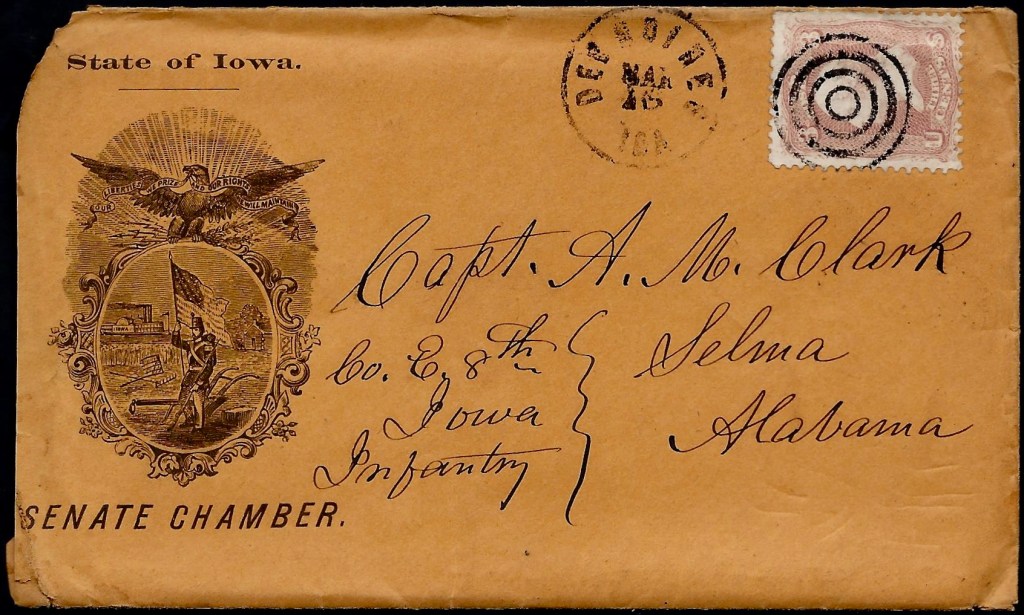 State of Iowa.
OUR LIBERTIES WE PRIZE AND OUR RIGHTS WE WILL MAINTAIN
IOWA
SENATE CHAMBER.
DES MOINES
MAR
IOA
U S
Capt. A. M. Clark
Co. E, 8th
Iowa
Infantry
Selma
Alabama